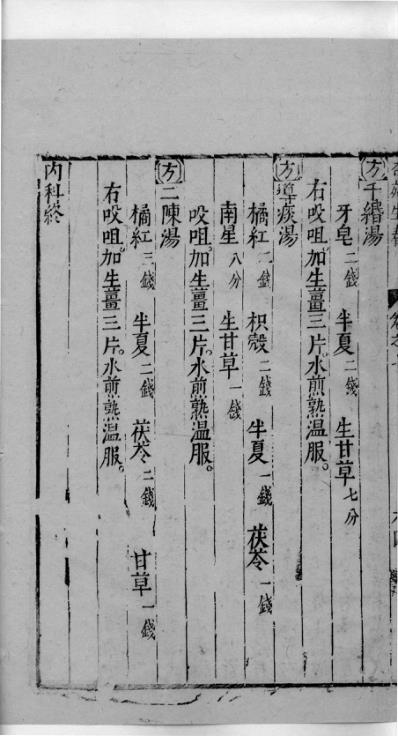 方千緡湯
牙皂二錢 半夏二錢 生甘草七分
右㕮咀。加生薑三片。水煎熟溫服。
方導痰湯
橘紅二錢 枳殼二錢 半夏一錢 茯苓一錢
南星八分 生甘草一錢
㕮咀。加生薑三片。水煎熟溫服。
方二陳湯
橘紅三錢 半夏二錢 茯苓二錢 甘草一錢
右㕮咀。加生薑三片。水煎熟溫服。
內科終